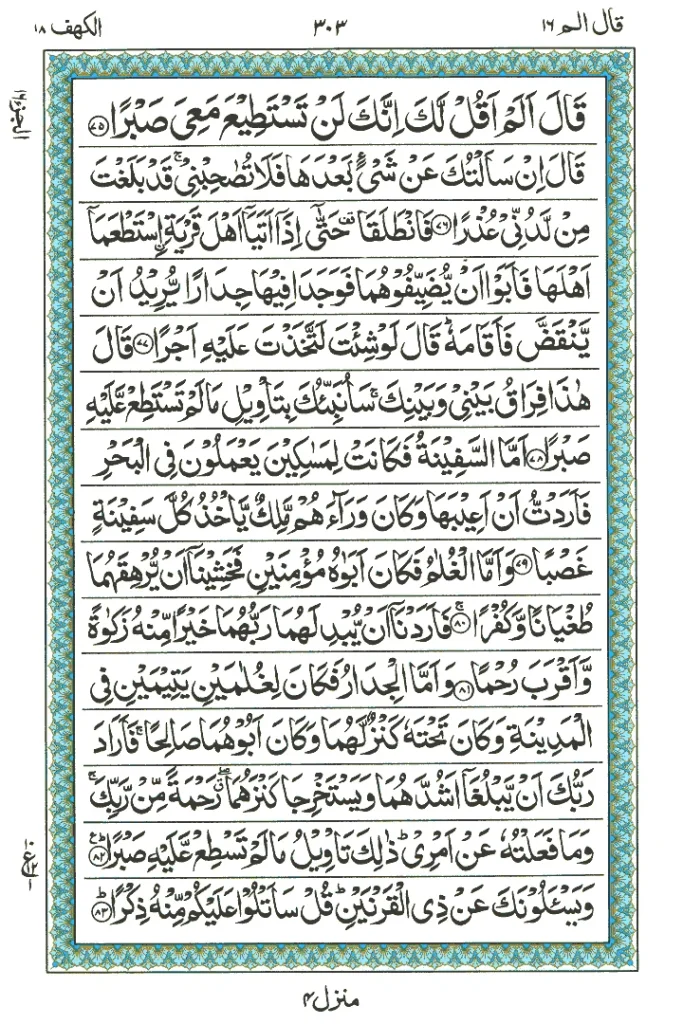 قال الم ١٦
٣٠٣
الكهف ١٨
الجزء ١٦
قَالَ اَلَمْ اَقُلْ لَّكَ اِنَّكَ لَنْ تَسْتَطِيْعَ مَعِىَ صَبْرًا ﴿٧٥﴾
قَالَ اِنْ سَاَلْتُكَ عَنْ شَىْءٍۭ بَعْدَهَا فَلَا تُصٰحِبْنِىْ ۚ قَدْ بَلَغْتَ
مِنْ لَّدُنِّىْ عُذْرًا ﴿٧٦﴾ فَانْطَلَقَا ٝ حَتّٰۤى اِذَاۤ اَتَيَاۤ اَهْلَ قَرْيَةِ ۨاسْتَطْعَمَاۤ
اَهْلَهَا فَاَبَوْا اَنْ يُّضَيِّفُوْهُمَا فَوَجَدَا فِيْهَا جِدَارًا يُّرِيْدُ اَنْ
يَّنْقَضَّ فَاَقَامَهٗ ؕ قَالَ لَوْ شِئْتَ لَتَّخَذْتَ عَلَيْهِ اَجْرًا ﴿٧٧﴾ قَالَ
هٰذَا فِرَاقُ بَيْنِىْ وَبَيْنِكَ ۚ سَاُنَبِّئُكَ بِتَاْوِيْلِ مَا لَمْ تَسْتَطِعْ عَّلَيْهِ
صَبْرًا ﴿٧٨﴾ اَمَّا السَّفِيْنَةُ فَكَانَتْ لِمَسٰكِيْنَ يَعْمَلُوْنَ فِى الْبَحْرِ
فَاَرَدْتُّ اَنْ اَعِيْبَهَا وَكَانَ وَرَآءَهُمْ مَّلِكٌ يَّاْخُذُ كُلَّ سَفِيْنَةٍ
غَصْبًا ﴿٧٩﴾ وَاَمَّا الْغُلٰمُ فَكَانَ اَبَوٰهُ مُؤْمِنَيْنِ فَخَشِيْنَاۤ اَنْ يُّرْهِقَهُمَا
طُغْيَانًا وَّكُفْرًا ﴿٨٠﴾ ۚ فَاَرَدْنَاۤ اَنْ يُّبْدِلَهُمَا رَبُّهُمَا خَيْرًا مِّنْهُ زَكٰوةً
وَّاَقْرَبَ رُحْمًا ﴿٨١﴾ وَاَمَّا الْجِدَارُ فَكَانَ لِغُلٰمَيْنِ يَتِيْمَيْنِ فِى
الْمَدِيْنَةِ وَكَانَ تَحْتَهٗ كَنْزٌ لَّهُمَا وَكَانَ اَبُوْهُمَا صَالِحًا ۚ فَاَرَادَ
رَبُّكَ اَنْ يَّبْلُغَاۤ اَشُدَّهُمَا وَيَسْتَخْرِجَا كَنْزَهُمَا ۖ رَحْمَةً مِّنْ رَّبِّكَ ۚ
وَمَا فَعَلْتُهٗ عَنْ اَمْرِىْ ؕ ذٰلِكَ تَاْوِيْلُ مَا لَمْ تَسْطِعْ عَّلَيْهِ صَبْرًا ﴿٨٢﴾ ؕ
وَيَسْـَٔلُوْنَكَ عَنْ ذِى الْقَرْنَيْنِ ؕ قُلْ سَاَتْلُوْا عَلَيْكُمْ مِّنْهُ ذِكْرًا ﴿٨٣﴾ ؕ
منزل ٤